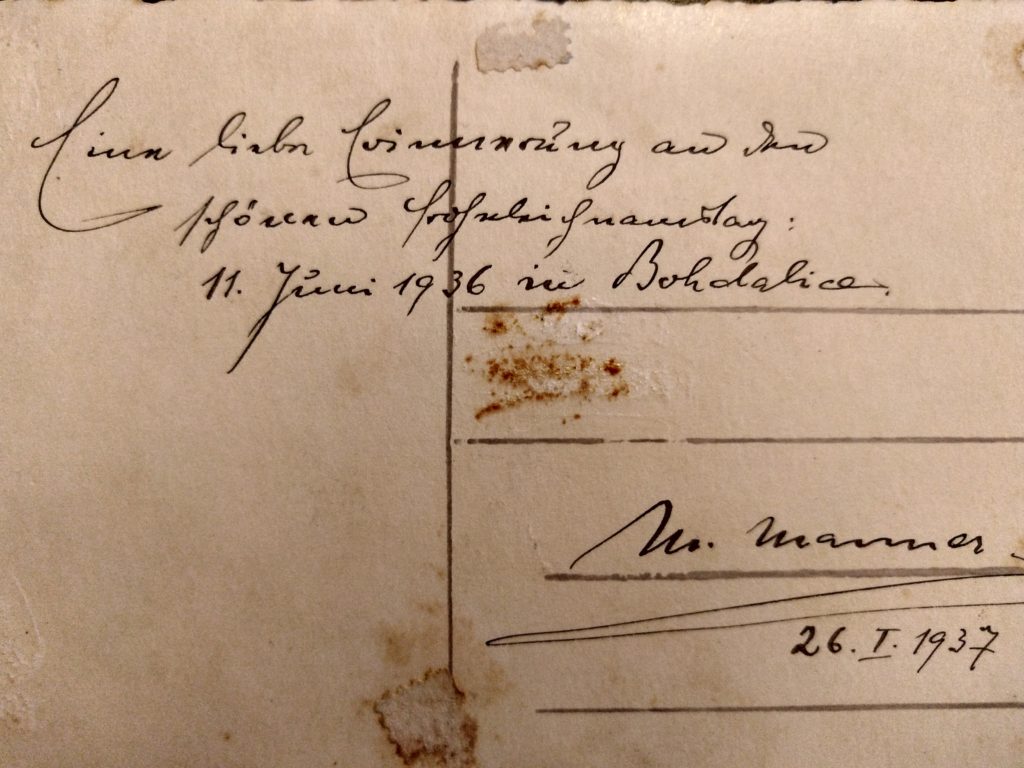 Eine liebe Erinnerung an den
schönen Frohnleichnamstag:
11. Juni 1936 in Bohdalice.
M. Manner
26. I. 1937